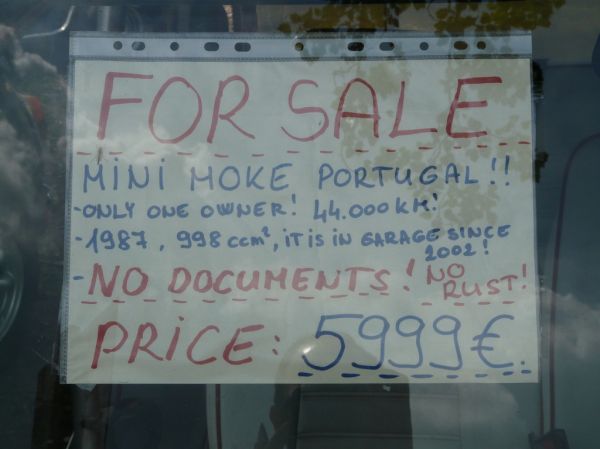 FOR SALE
MINI MOKE PORTUGAL!!
-ONLY ONE OWNER! 44.000KM!
-1987, 998 ccm², IT IS IN GARAGE SINCE
2002!
-NO DOCUMENTS! NO
RUST!
PRICE: 5999€.